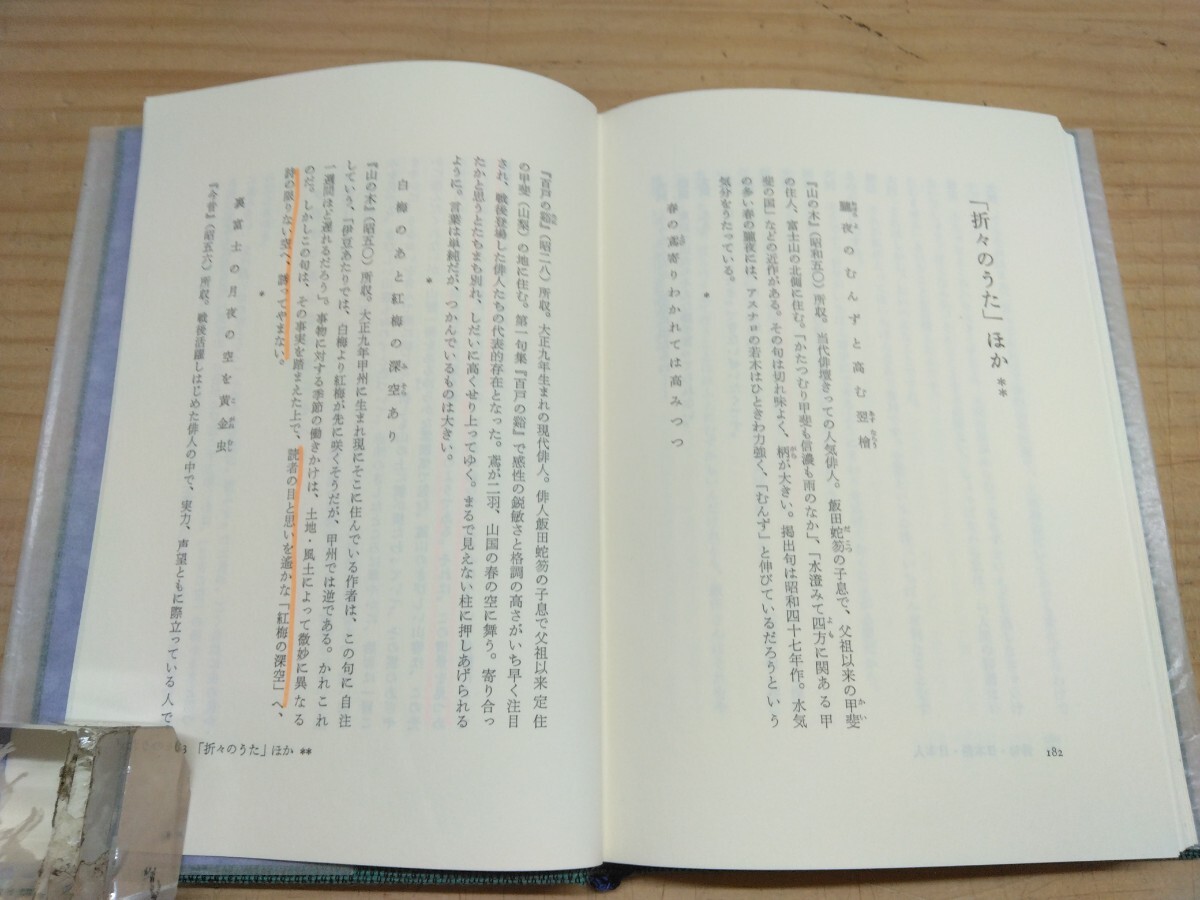 「折々のうた」ほか**
朧夜のむんずと高む翌檜
『山の木』（昭和五〇）所収。当代俳壇きっての人気俳人。飯田蛇笏の子息で、父祖以来の甲斐
の住人、富士山の北側に住む。「かたつむり甲斐も信濃も雨のなか」、「水澄みて四方に関ある甲
斐の国」などの近作がある。その句は切れ味よく、柄が大きい。掲出句は昭和四十七年作。水気
の多い春の朧夜には、アスナロの若木はひときわ力強く、「むんず」と伸びているだろうという
気分をうたっている。
*
春の鳶寄りわかれては高みつつ
182
『百戸の谿』（昭二八）所収。大正九年生まれの現代俳人。俳人飯田蛇笏の子息で父祖以来定住
の甲斐（山梨）の地に住む。第一句集『百戸の谿』で感性の鋭敏さと格調の高さがいち早く注目
され、戦後登場した俳人たちの代表的存在となった。鳶が二羽、山国の春の空に舞う。寄り合っ
たかと思うとたちまち別れ、しだいに高くせり上ってゆく。まるで見えない柱に押しあげられる
ように。言葉は単純だが、つかんでいるものは大きい。
*
白梅のあと紅梅の深空あり
『山の木』（昭五〇）所収。大正九年甲州に生まれ現にそこに住んでいる作者は、この句に自注
していう、「伊豆あたりでは、白梅より紅梅が先に咲くそうだが、甲州では逆である。かれこれ
一週間ほど遅れるだろう」。事物に対する季節の働きかけは、土地・風土によって微妙に異なる
のだ。しかしこの句は、その事実を踏まえた上で、読者の目と思いを遙かな「紅梅の深空」へ、
詩の限りない空へ、誘ってやまない。
*
裏富士の月夜の空を黄金虫
『今昔』（昭五六）所収。戦後活躍しはじめた俳人の中で、実力、声望ともに際立っている人で
3 「折々のうた」ほか**